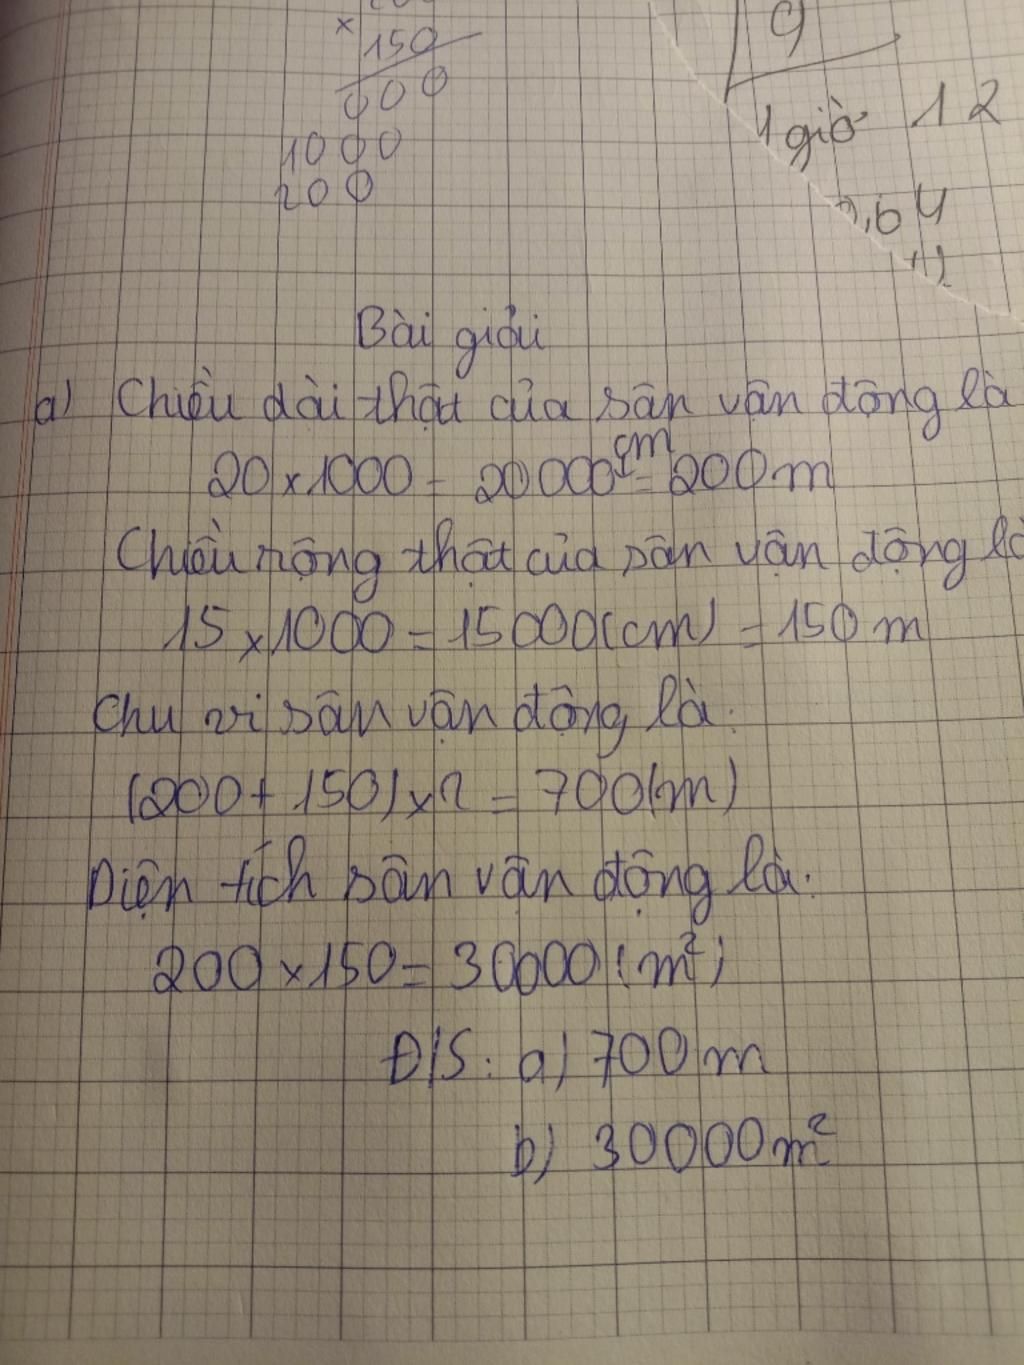 × 150
000
1000
200
9
1 giờ 12
,64
Bài giải
a) Chiều dài thật của sân vận động là
20 × 1000 = 20000 cm = 200 m
Chiều rộng thật của sân vận động là
15 × 1000 = 15000 (cm) = 150 m
Chu vi sân vận động là:
(200 + 150) × 2 = 700 (m)
Diện tích sân vận động là:
200 × 150 = 30000 (m²)
Đ/S: a) 700 m
b) 30000 m²